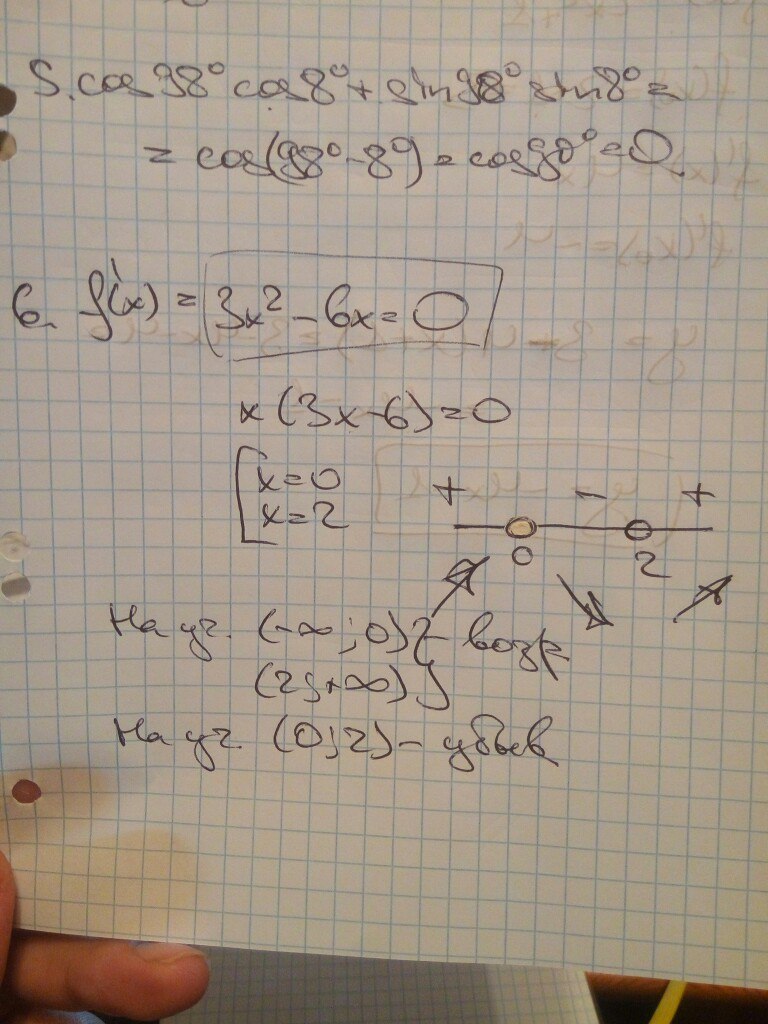 5. cos98° cos8° + sin98° sin8° =
= cos(98° - 8°) = cos90° = 0
6. f'(x) = 3x² - 6x = 0
x(3x-6) = 0
[x=0
x=2
+ - +
0 2
На уч. (-∞; 0) } - возр
(2; +∞)
На уч. (0; 2) - убыв